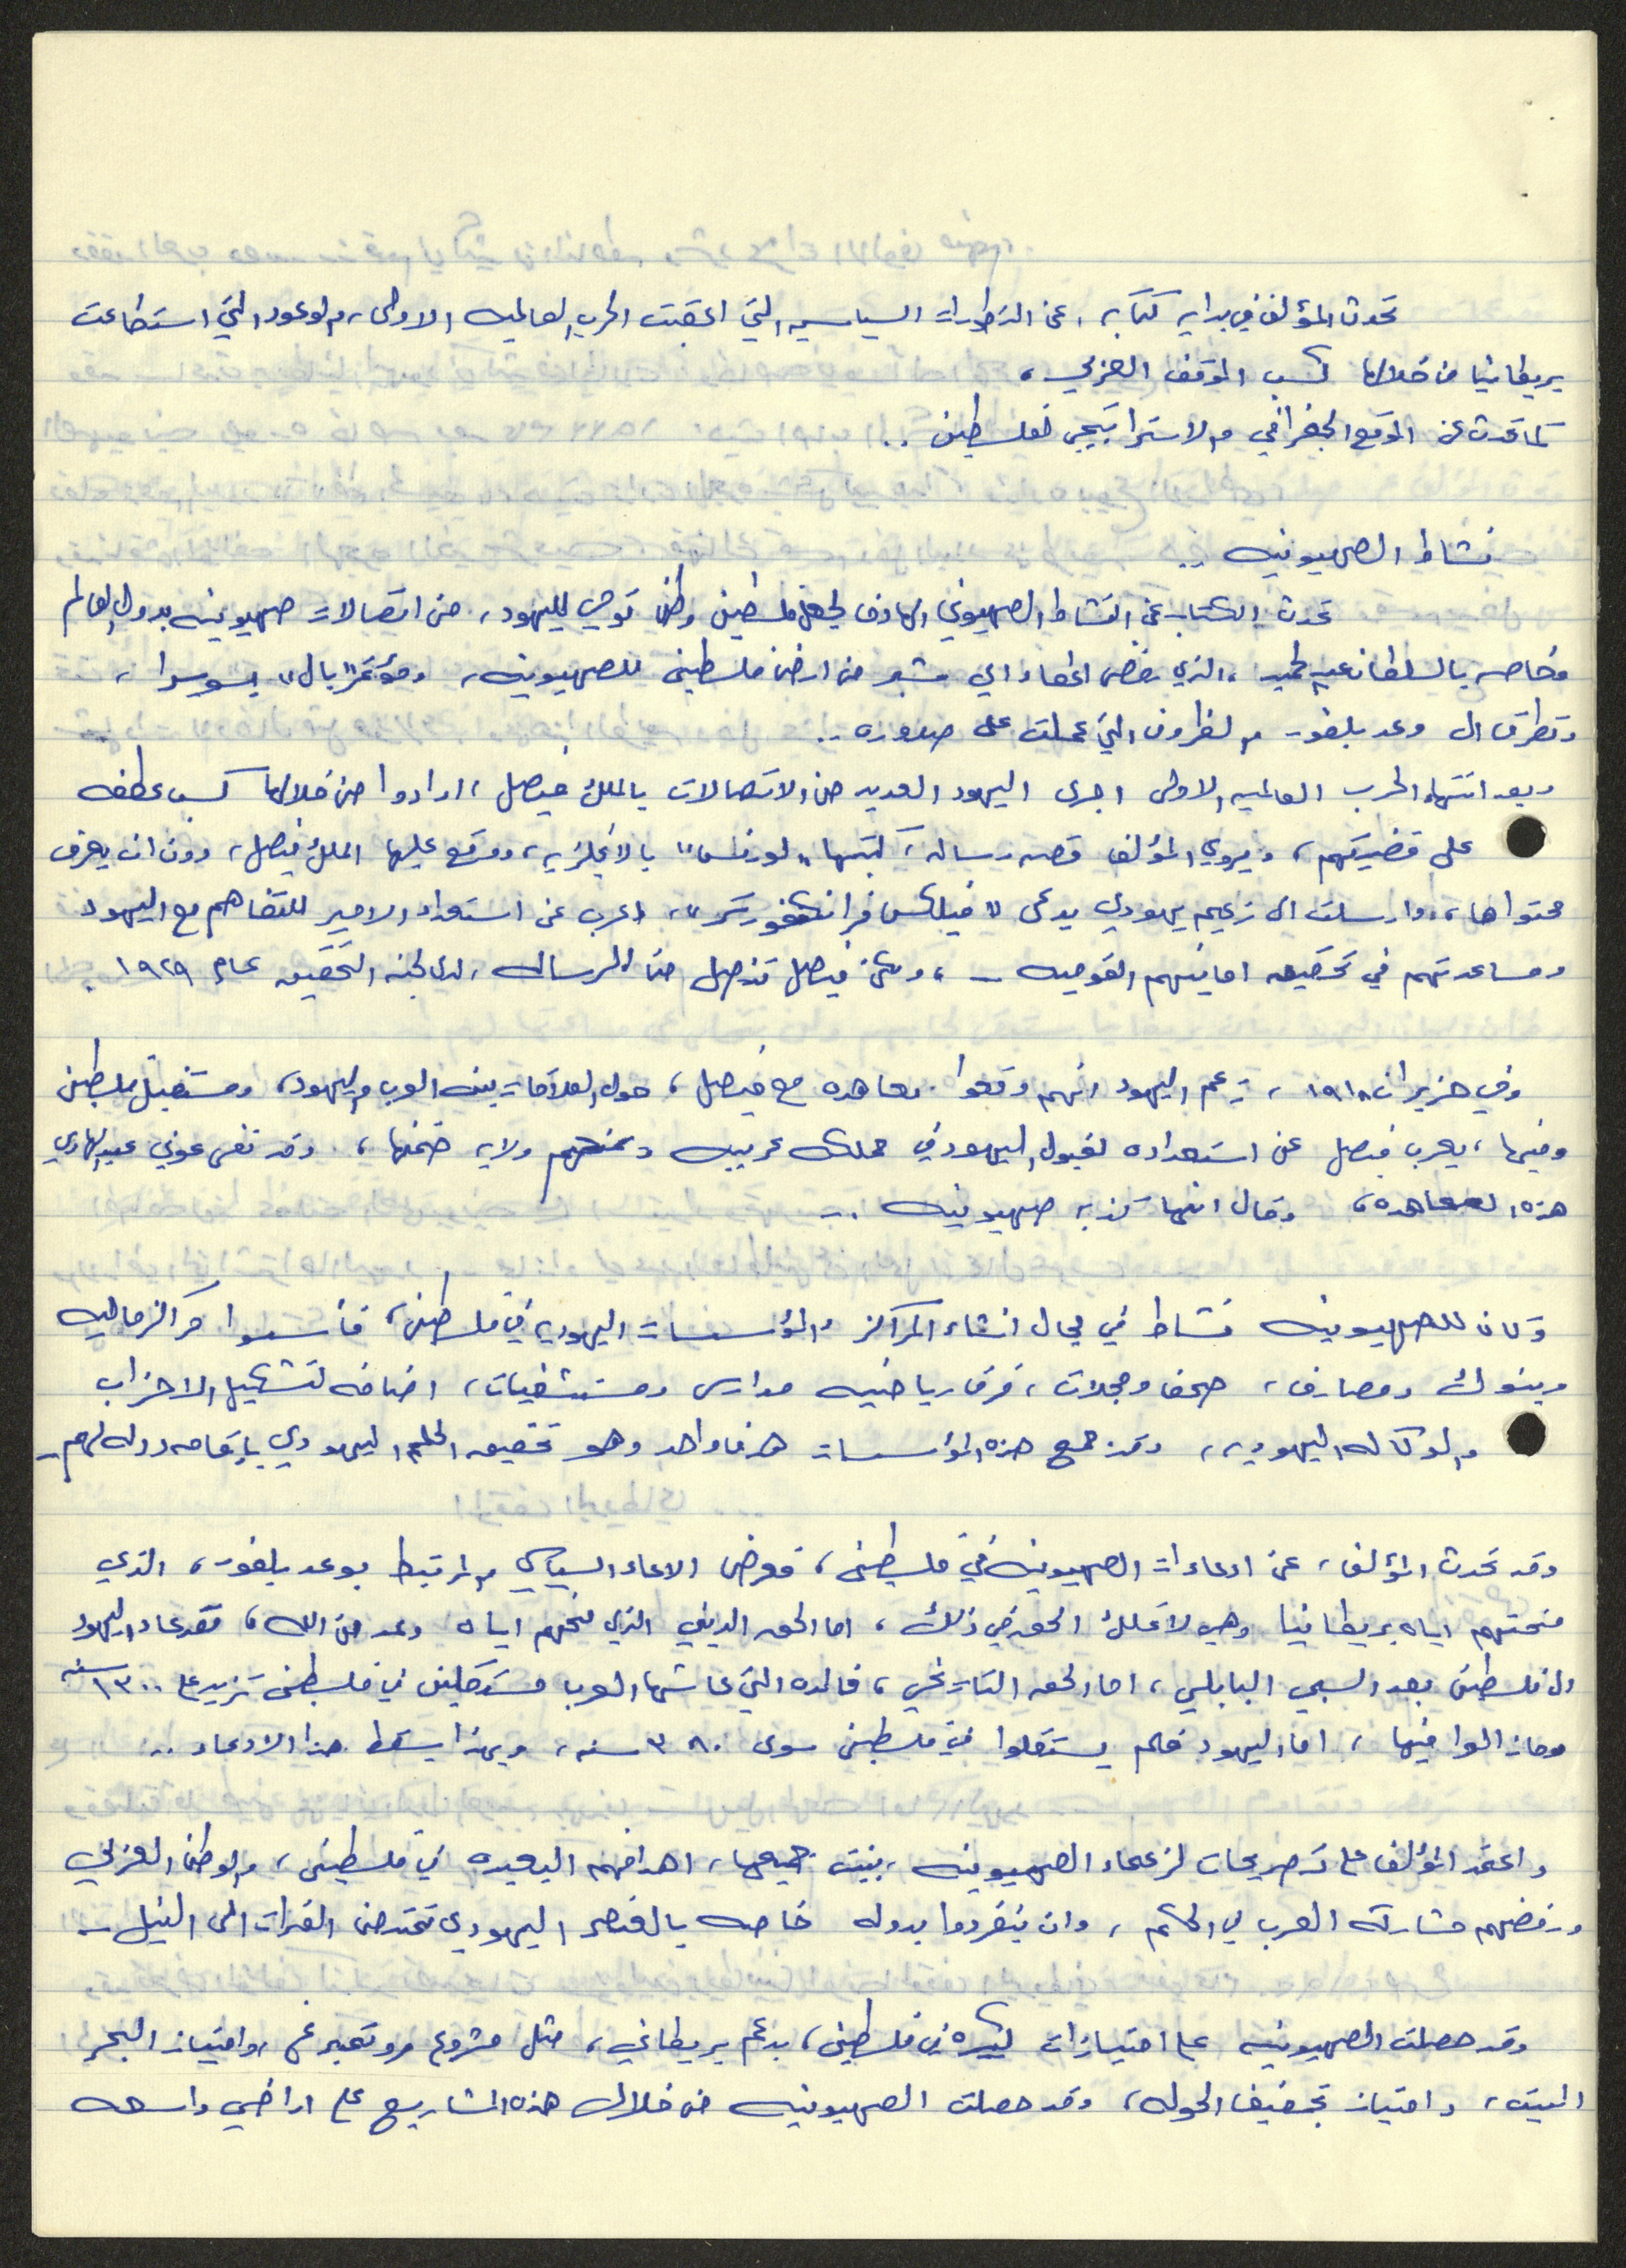 تحدث المؤلف في بدايه كتابه ، عن التطورات السياسيه التي اعقبت الحرب العالميه الاولى ، والوعود التي استطاعت
بريطانيا من خلالها كسب الموقف العربي ،
كما تحدث عن الموقع الجغرافي والاستراتيجي لفلسطين ..
نشاط الصهيونيه ..
تحدث الكتاب عن النشاط الصهيوني الهادف لجعل فلسطين وطن قومي لليهود ، من اتصالات صهيونيه بدول العالم
وخاصه بالسلطان عبد الحميد ، الذي رفض اعطاء اي شبر من ارض فلسطين للصهيونيه ، ومؤتمر "بال" بسويسرا ،
وتطرق الى وعد بلفور والظروف التي عملت على صدوره ..
وبعد انتهاء الحرب العالميه الاولى اجرى اليهود العديد من الاتصالات بالملك فيصل ، ارادوا من خلالها كسب عطفه
على قضيتهم ، ويروي المؤلف قصه رساله ، كتبها "لورنس" بالانجليزيه ، ووقع عليها الملك فيصل ، دون ان يعرف
محتواها ، وارسلت الى زعيم يهودي يدعى "فيلكس فرانكفورتر" ، اعرب عن استعداد الامير للتفاهم مع اليهود
ومساعدتهم في تحقيق امانيهم القوميه - ، ولكن فيصل تنصل من الرساله ، لدى لجنه التحقيق عام ١٩٢٩ .
وفي حزيران ١٩١٨ ، زعم اليهود انهم وقعوا معاهده مع فيصل ، حول العلاقات بين العرب واليهود ، ومستقبل فلسطين
وفيها ، يعرب فيصل عن استعداده لقبول اليهود في مملكه عربيه ومنحهم ولايه ضمنها ، وقد نفى عوني عبد الهادي
هذه المعاهده ، وقال انها كذبه صهيونيه ..
وكان للصهيونيه نشاط في مجال انشاء المراكز والمؤسسات اليهوديه في فلسطين ، فأسسوا مراكز ماليه
وبنوك ومصارف ، صحف ومجلات ، فرق رياضيه مدارس ومستشفيات ، اضافه لتشكيل الاحزاب
والوكاله اليهوديه ، وقد جمع هذه المؤسسات هدفا واحد وهو تحقيق الحلم اليهودي بإقامه دوله لهم -
وقد تحدث المؤلف ، عن ادعاءات الصهيونيه في فلسطين ، فعرض الادعاء السياسي والمرتبط بوعد بلفور ، الذي
منحتهم اياه بريطانيا وهي لا تملك الحق في ذلك ، اما الحق الديني الذي منحهم اياه وعد من الله ، فقد عاد اليهود
الى فلسطين بعد السبي البابلي ، اما الحق التاريخي ، فالمده التي عاشها العرب مستقلين في فلسطين تزيد على ١٣٠٠ سنه
ومازالوا فيها ، اما اليهود فلم يستقلوا في فلسطين سوى ٣٨٠ سنه ، وبهذا يسقط هذا الادعاء ..
واعتمد المؤلف على تصريحات لزعماء الصهيونيه ، بينت جميعها ، اهدافهم البعيده في فلسطين ، والوطن العربي
ورفضهم مشاركه العرب في الحكم ، وان ينفردوا بدوله خاصه بالعنصر اليهودي تمتد من الفرات الى النيل -
وقد حصلت الصهيونيه على امتيازات كبيره في فلسطين ، بدعم بريطاني ، مثل مشروع روتمبرغ ، وامتياز البحر
الميت ، وامتياز تجفيف الحوله ، وقد حصلت الصهيونيه من خلال هذه المشاريع على اراضي واسعه